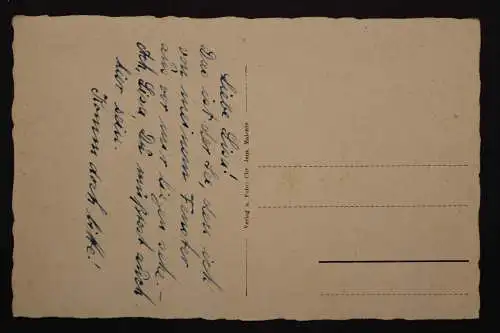 Liebe Lisa!
Das ist der See, den ich
von meinem Fenster
aus vor mir liegen sehe. –
Ach, Lisa, Du müßtest auch
hier sein.
Komm doch bitte!
Verlag u. Foto: Chr. Jepp, Malente